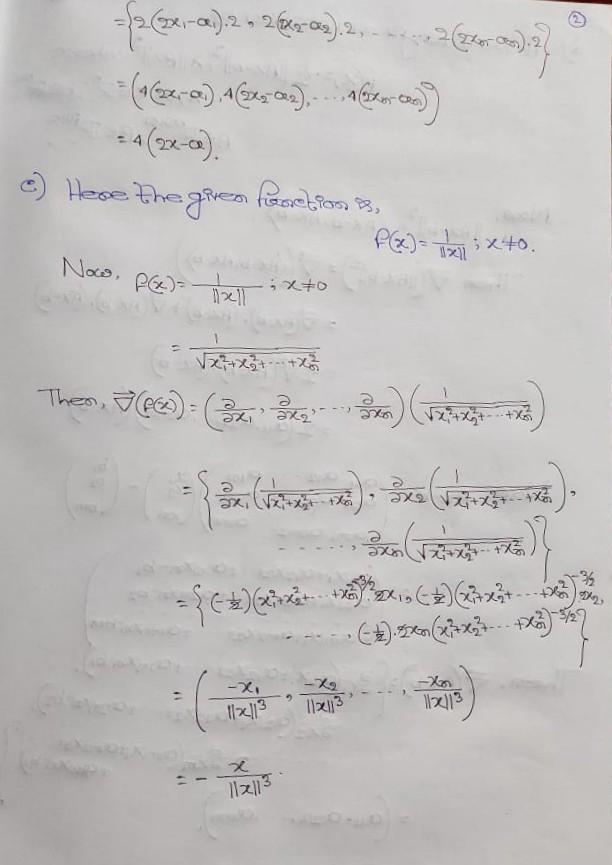 ②
={2(2x₁-α₁).2, 2(2x₂-α₂).2, ......, 2(2xₙ-αₙ).2}
=(4(2x₁-α₁), 4(2x₂-α₂), ...., 4(2xₙ-αₙ))
=4(2x-α).
c) Here the given function is,
f(x)=1/||x|| ; x≠0.
Now, f(x)=1/||x|| ; x≠0
= 1/√(x₁²+x₂²+...+xₙ²)
Then, ∇⃗(f(x)) = (∂/∂x₁, ∂/∂x₂, ...., ∂/∂xₙ)(1/√(x₁²+x₂²+...+xₙ²))
={∂/∂x₁(1/√(x₁²+x₂²+...+xₙ²)), ∂/∂x₂(1/√(x₁²+x₂²+...+xₙ²)),
......, ∂/∂xₙ(1/√(x₁²+x₂²+...+xₙ²))}
={(-1/2)(x₁²+x₂²+...+xₙ²)^(-3/2).2x₁, (-1/2)(x₁²+x₂²+...+xₙ²)^(-3/2).2x₂,
......, (-1/2).2xₙ(x₁²+x₂²+...+xₙ²)^(-3/2)}
=(-x₁/||x||³, -x₂/||x||³, ...., -xₙ/||x||³)
=-x/||x||³.